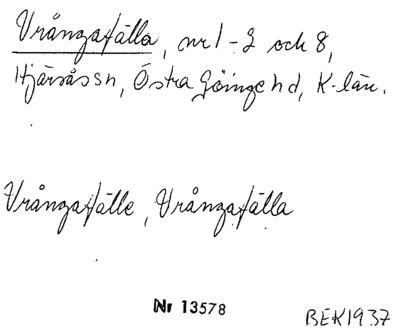 Vrångafälla, nr 1-2 och 8,
Hjärsås sn, Östra Göinge hd, K-län.
Vrångafälle, Vrångafälla
Nr 13578
BEK 1937